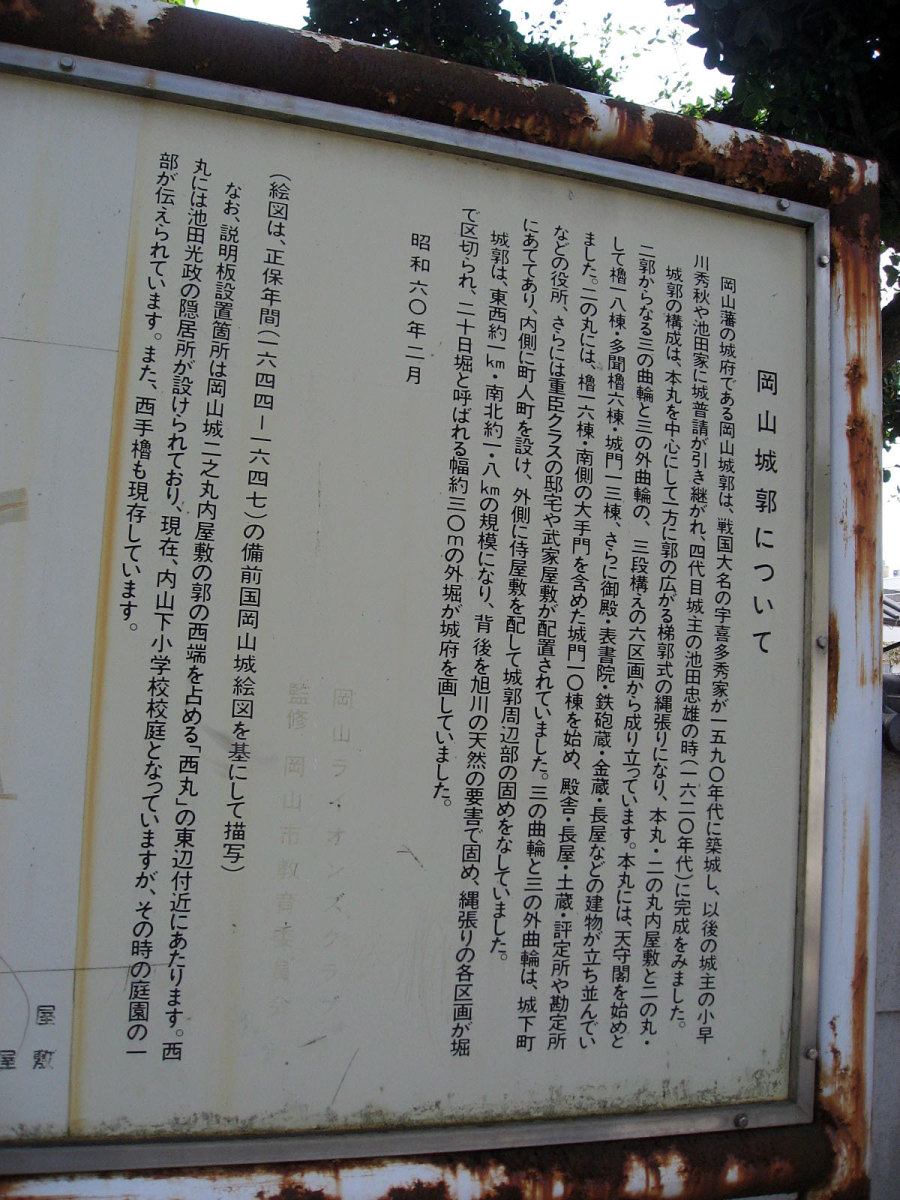 岡山城郭について
岡山藩の城府である岡山城郭は、戦国大名の宇喜多秀家が一五九〇年代に築城し、以後の城主の小早
川秀秋や池田家に城普請が引き継がれ、四代目城主の池田忠雄の時(一六二〇年代)に完成をみました。
城郭の構成は、本丸を中心にして一方に郭の広がる梯郭式の縄張りになり、本丸・二の丸内屋敷と二の丸・
二郭からなる三の曲輪と三の外曲輪の、三段構えの六区画から成り立っています。本丸には、天守閣を始めと
して櫓一八棟・多聞櫓六棟・城門一三棟、さらに御殿・表書院・鉄砲蔵・金蔵・長屋などの建物が立ち並んでい
ました。二の丸には、櫓一六棟・南側の大手門を含めた城門一〇棟を始め、殿舎・長屋・土蔵・評定所や勘定所
などの役所、さらには重臣クラスの邸宅や武家屋敷が配置されていました。三の曲輪と三の外曲輪は、城下町
にあててあり、内側に町人町を設け、外側に侍屋敷を配して城郭周辺部の固めをなしていました。
城郭は、東西約一km・南北約一・八kmの規模になり、背後を旭川の天然の要害で固め、縄張りの各区画が堀
で区切られ、二十日堀と呼ばれる幅約三〇mの外堀が城府を画していました。
昭和六〇年二月
岡山ライオンズクラブ
監修 岡山市教育委員会
(絵図は、正保年間(一六四四―一六四七)の備前国岡山城絵図を基にして描写)
なお、説明板設置箇所は岡山城二之丸内屋敷の郭の西端を占める「西丸」の東辺付近にあたります。西
丸には池田光政の隠居所が設けられており、現在、内山下小学校校庭となっていますが、その時の庭園の一
部が伝えられています。また、西手櫓も現存しています。
屋敷
屋